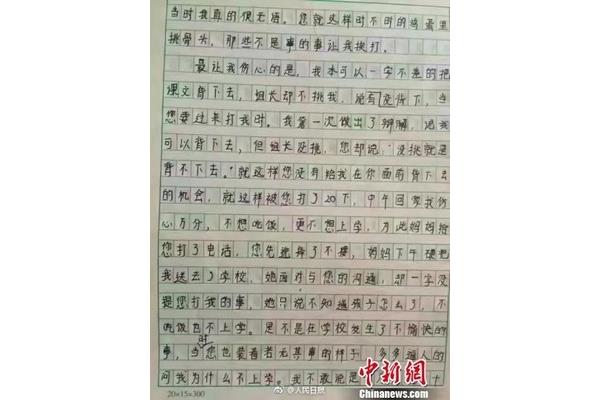 当时我真的很无语。您就这样时不时的鸡蛋里
挑骨头,那些不是事的事让我挨打。
最让我伤心的是,我本可以一字不差的把
课文背下去,组长却不挑我,说有没背下,当
您要过来打我时。我第一次做出了辩解,说我
可以背下去,但组长没挑,您却说“没挑就是
背不下去。”就这样您没有给我在你面前背下去
的机会,就这样被您打了20下,中午回家我伤
心万分,不想吃饭,更不想上学,为此妈妈给
您打了电话,您先选择了不接,妈妈下午硬把
我送去了学校,她面对与您的沟通,却一字没
提您打我的事,她只说不知道孩子怎么了,不
吃饭也不上学。是不是在学校发生了不愉快的
事,当时您也装着若无其事的样子,多多逼人的
问我为什么不上学。我不敢说是
20×15=300
@人民日报
中新网
Chinanews.com